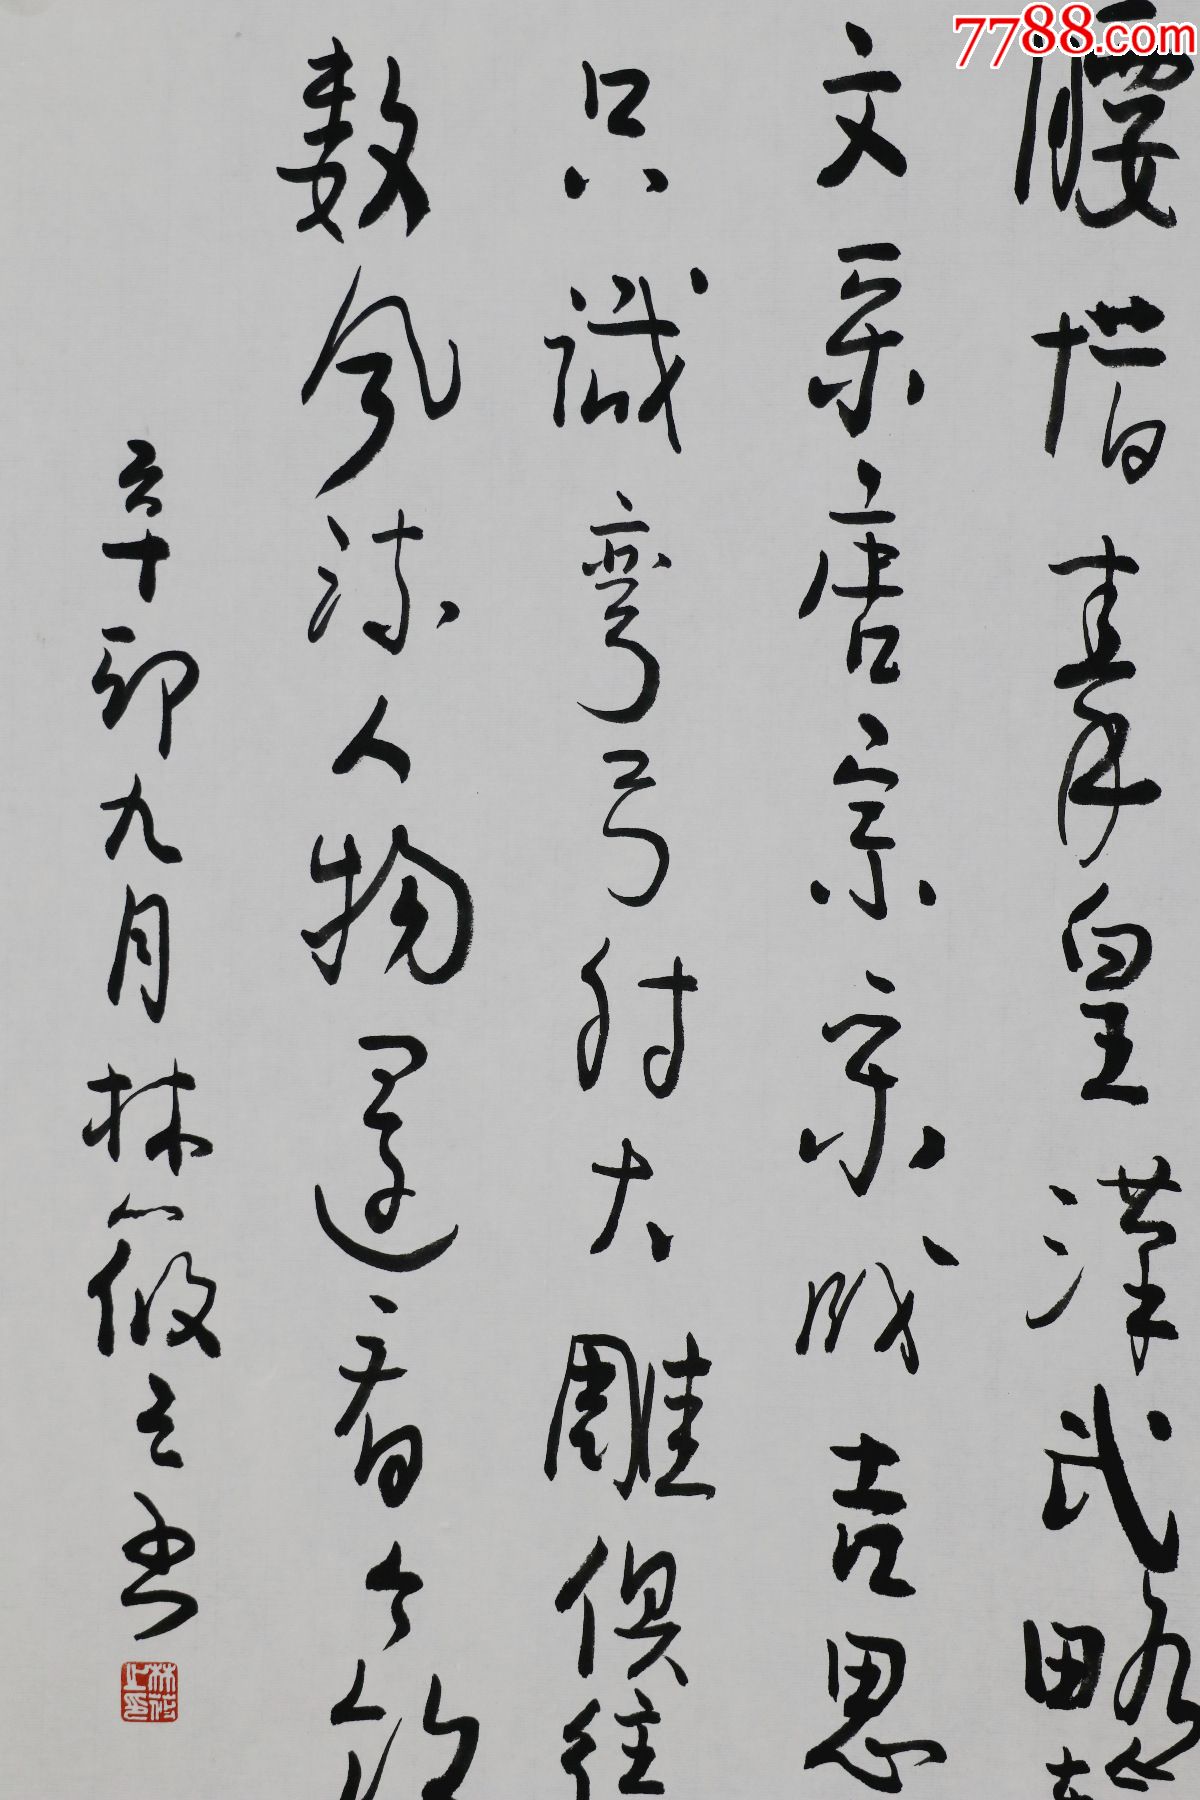 7788.com
腰惜秦皇漢武略
文采唐宗宋成吉思
只識彎弓射大雕俱往
數風流人物還看今
辛卯九月林筱之書
林筱之印